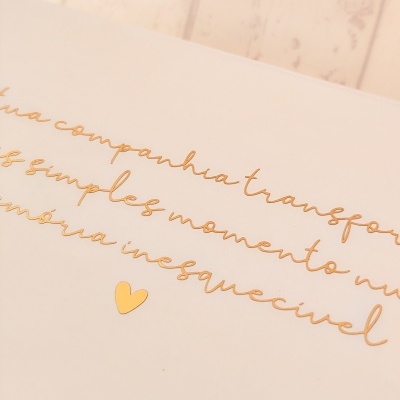 tua companhia transfor
s simples momento nu
mória inesquecível